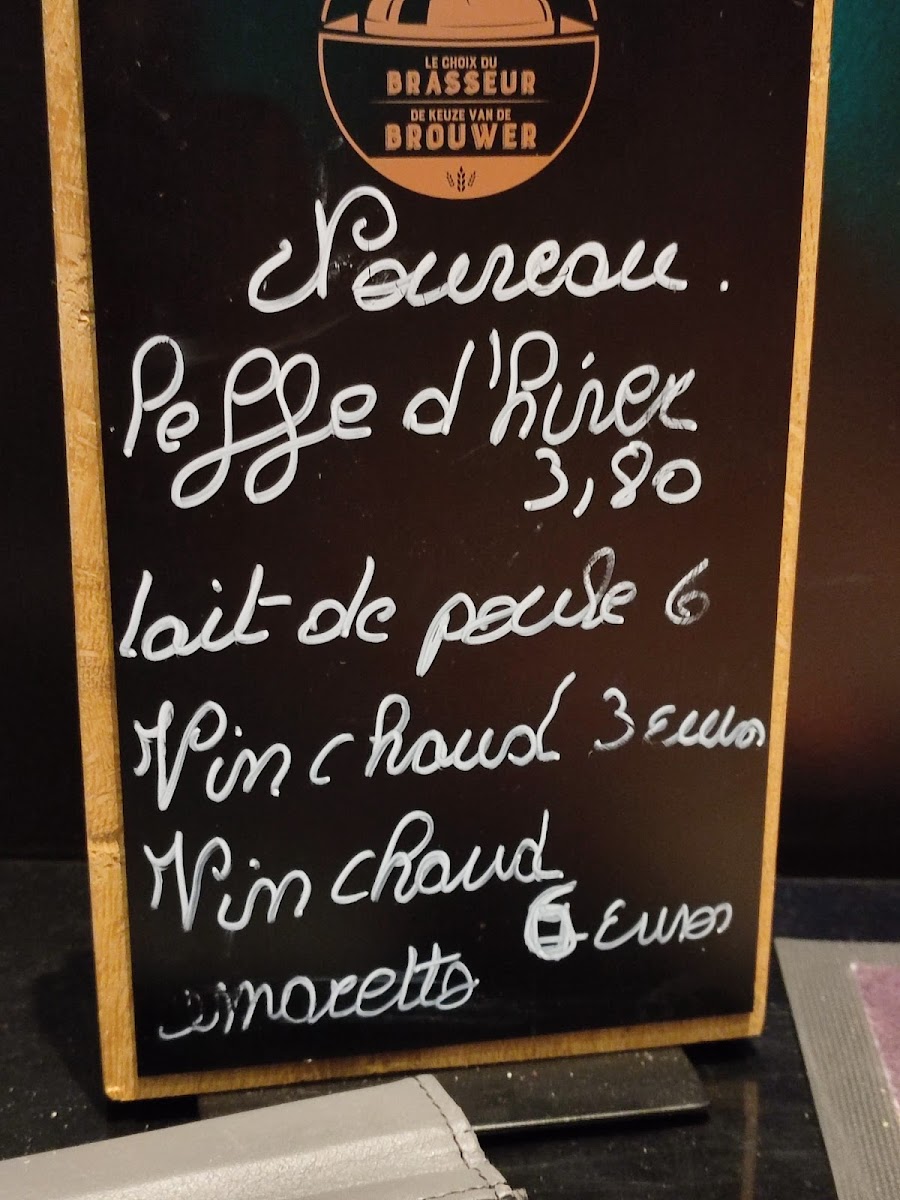 LE CHOIX DU
BRASSEUR
DE KEUZE VAN DE
BROUWER
Nouveau.
Leffe d'hiver
3,80
lait de poule 6
Vin chaud 3 Euros
Vin chaud
6 Euros
amaretto